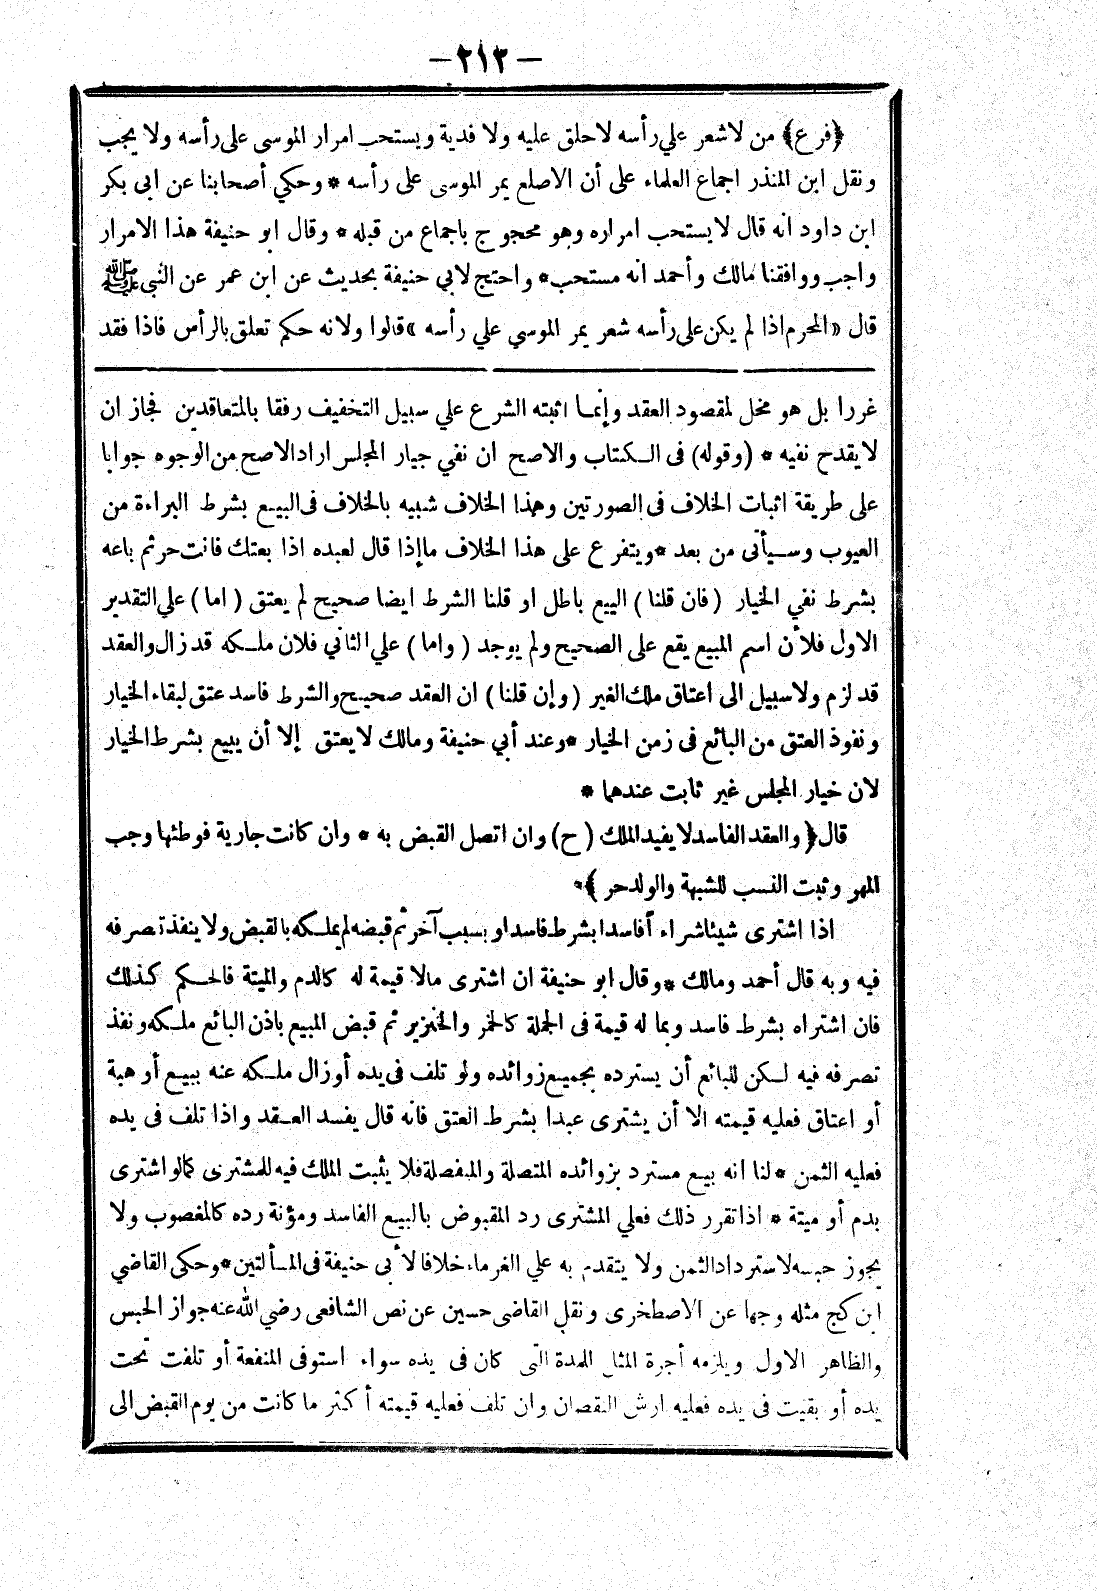 -٢١٢-
﴿فرع﴾ من لاشعر علي رأسه لاحلق عليه ولا فدية ويستحب امرار الموسى على رأسه ولا يجب
ونقل ابن المنذر اجماع العلماء على أن الاصلع يمر الموسى على رأسه * وحكي أصحابنا عن ابى بكر
ابن داود انه قال لايستحب امراره وهو محجوج باجماع من قبله * وقال ابو حنيفة هذا الامرار
واجب ووافقنا مالك وأحمد انه مستحب * واحتج لابي حنيفة بحديث عن ابن عمر عن النبي ﷺ
قال «المحرم اذا لم يكن على رأسه شعر يمر الموسي علي رأسه» قالوا ولانه حكم تعلق بالرأس فاذا فقد
غررا بل هو مخل لمقصود العقد وإنما اثبته الشرع علي سبيل التخفيف رفقا بالمتعاقدين فجاز ان
لايقدح نفيه * (وقوله) فى الكتاب والاصح ان نفي جيار المجلس اراد الاصح من الوجوه جوابا
على طريقة اثبات الخلاف فى الصورتين وهذا الخلاف شبيه بالخلاف فى البيع بشرط البراءة من
العيوب وسيأتى من بعد * ويتفرع على هذا الخلاف ماإذا قال لعبده اذا بعتك فانت حر ثم باعه
بشرط نفي الخيار (فان قلنا) البيع باطل او قلنا الشرط ايضا صحيح لم يعتق (اما) علي التقدير
الاول فلأن اسم المبيع يقع على الصحيح ولم يوجد (واما) علي الثاني فلان ملكه قد زال والعقد
قد لزم ولا سبيل الى اعتاق ملك الغير (وإن قلنا) ان العقد صحيح والشرط فاسد عتق لبقاء الخيار
ونفوذ العتق من البائع فى زمن الخيار * وعند أبي حنيفة ومالك لايعتق إلا أن يبيع بشرط الخيار
لان خيار المجلس غير ثابت عندهما *
قال ﴿والعقد الفاسد لا يفيد الملك (ح) وان اتصل القبض به * وان كانت جارية فوطئها وجب
المهر وثبت النسب للشبهة والولد حر﴾*
اذا اشترى شيئا شراء آفاسدا بشرط فاسد او بسبب آخر ثم قبضه لم يملكه بالقبض ولا ينفذ تصرفه
فيه وبه قال أحمد ومالك * وقال ابو حنيفة ان اشترى مالا قيمة له كالدم والميتة فالحكم كذلك
فان اشتراه بشرط فاسد وبما له قيمة فى الجملة كالخمر والخنزير ثم قبض المبيع باذن البائع ملكه ونفذ
تصرفه فيه لكن للبائع أن يسترده بجميع زوائده ولو تلف فى يده أو زال ملكه عنه ببيع أو هبة
أو اعتاق فعليه قيمته الا أن يشترى عبدا بشرط العتق فانه قال يفسد العقد واذا تلف فى يده
فعليه الثمن * لنا انه بيع مسترد بزوائده المتصلة والمنفصلة فلا يثبت الملك فيه للمشترى كمالو اشترى
بدم أو ميتة * اذا تقرر ذلك فعلي المشترى رد المقبوض بالبيع الفاسد ومؤنة رده كالمغصوب ولا
يجوز حبسه لاسترداد الثمن ولا يتقدم به علي الغرماء خلافا لأبى حنيفة فى المسألتين * وحكى القاضي
ابن كج مثله وجها عن الاصطخرى ونقل القاضى حسين عن نص الشافعى رضي الله عنه جواز الحبس
والظاهر الاول ويلزمه أجرة المثل للمدة التى كان فى يده سواء استوفى المنفعة أو تلفت تحت
يده أو بقيت فى يده فعليه ارش النقصان وان تلف فعليه قيمته أكثر ما كانت من يوم القبض الى